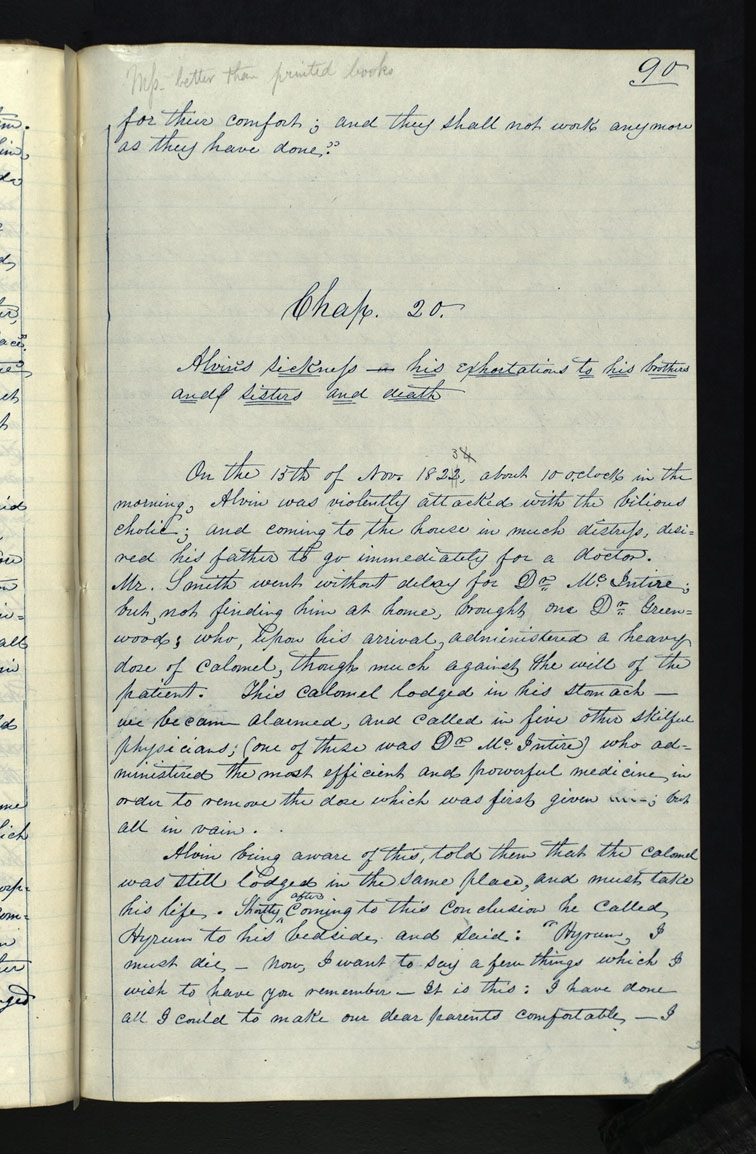 Mss- better than printed books
90
for their comfort; and they shall not work anymore
as they have done."
Chap. 20.
Alvin's sickness — his exhortations to his brothers
and sisters and death
On the 15th of Nov. 1823, 34 about 10 oclock in the
morning, Alvin was violently attacked with the bilious
cholic; and coming to the house in much distress, desi=
red his father to go immediately for a doctor.
Mr. Smith went without delay for Dr. Mc.Intire;
but, not finding him at home, brought one Dr. Green=
wood; who, upon his arrival, administered a heavy
dose of calomel, though much against the will of the
patient. This calomel lodged in his stomach —
we becam alarmed, and called in five other skilful
physicians; (one of these was Dr. Mc.Intire) who ad=
ministered the most efficient and powerful medicine, in
order to remove the dose which was first given; but
all in vain.
Alvin being aware of this, told them that the calomel
was still lodged in the same place, and must take
his life. Shortly after coming to this conclusion he called
Hyrum to his bedside, and said: "Hyrum, I
must die, — now, I want to say a few things which I
wish to have you remember — It is this: I have done
all I could to make our dear parents comfortable, — I